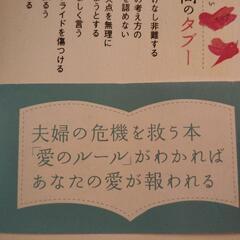 のタブー
けなし非難する
の考え方の
を認めない
点を無理に
うとする
しく言う
ライドを傷つける
るう
る
夫婦の危機を救う本
「愛のルール」がわかれば
あなたの愛が報われる